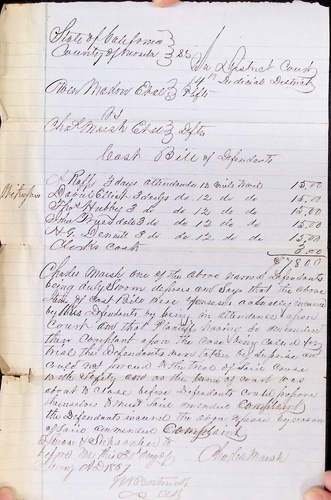 State of California
County of Nevada } SS
In District Court
14th Judicial District
Meadow et al } Plffs
vs
Chas Marsh et al } Defts
Cost Bill of Defendants
Witnesses
3 days attendance 12 miles travel 15,00
David Elliott 3 days do 12 do do 15,00
Thos 3 do do 12 do do 15,00
3 do 12 do do 15,00
H. G. 3 do 12 do do 15,00
Clerks cost 3,00
$78.00
Charles Marsh one of the above named Defendants
being duly sworn deposes and says that the above
Items of Cost Bill were expenses actually incurred
by the Defendants by being in attendance upon
Court and that Plaintiffs having so amended
their Complaint upon the case being called for
trial the Defendants were taken by surprise and
could not proceed to the trial of said cause
with safety and as the term of court was
about to close before Defendants could prepare
themselves to meet said amended Complaint
the Defendants incurred the above expenses by reason
of said amended Complaint
Sworn & Subscribed to
before me this day of
Charles Marsh
Clk